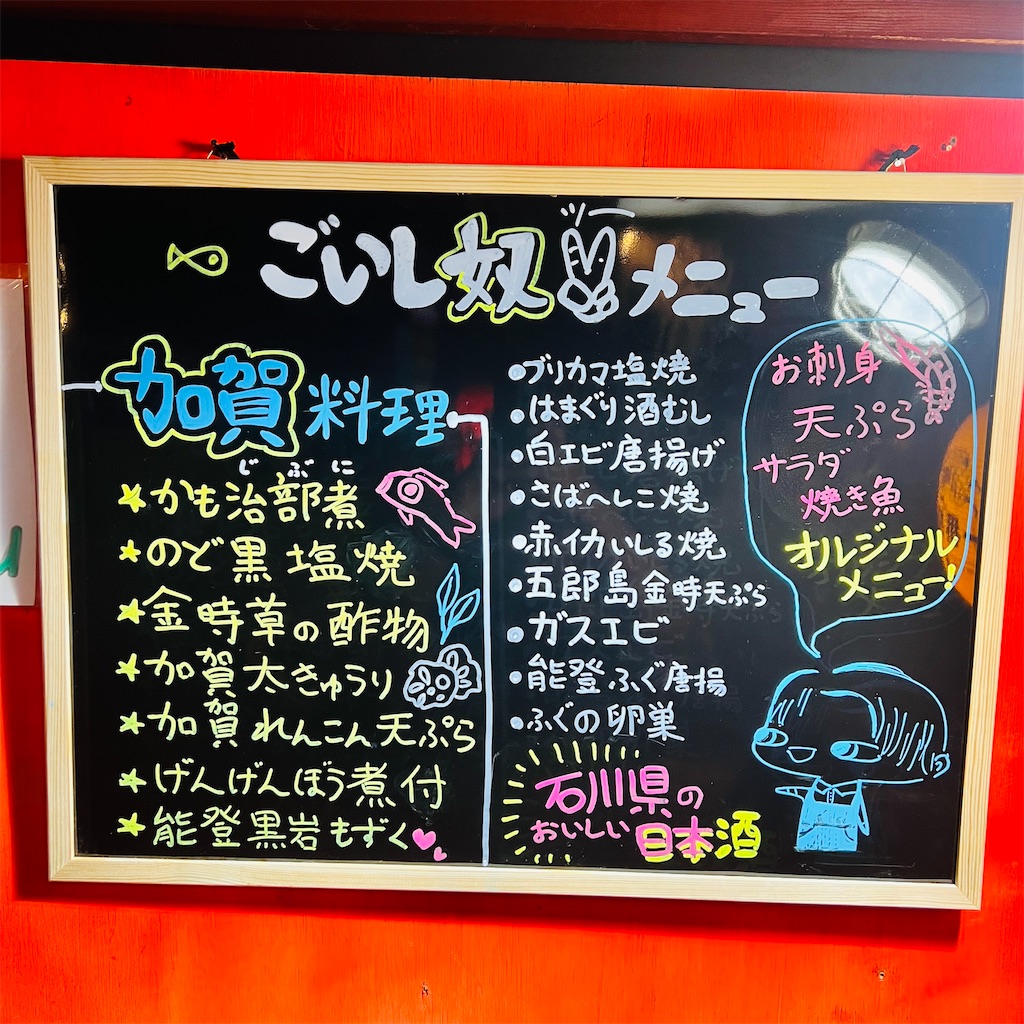 ごいし奴 メニュー
加賀料理
じぶに
★かも治部煮
★のど黒塩焼
★金時草の酢物
★加賀太きゅうり
★加賀れんこん天ぷら
★げんげんぼう煮付
★能登黒岩もずく
•ブリカマ塩焼
•はまぐり酒むし
•白エビ唐揚げ
•さばへしこ焼
•赤イカいしる焼
•五郎島金時天ぷら
•ガスエビ
•能登ふぐ唐揚
•ふぐの卵巣
石川県の
おいしい日本酒
お刺身
天ぷら
サラダ
焼き魚
オルジナル
メニュー!